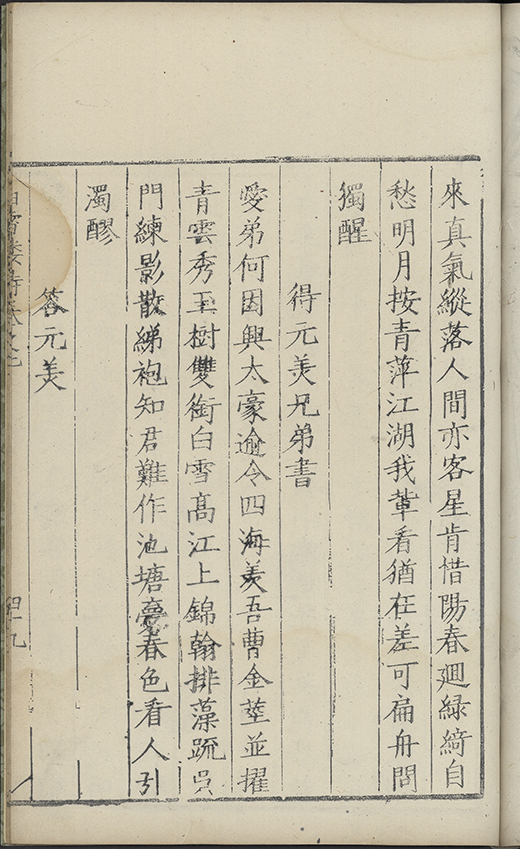 來真氣縱落人間亦客星肯惜陽春廻綠綺自
愁明月按青萍江湖我軰看猶在差可扁舟問
獨醒
得元美兄弟書
愛弟何因興太豪逾令四海羨吾曹金莖並擢
青雲秀玉樹雙銜白雪高江上錦翰排藻䟽吳
門練影散綈袍知君難作池塘夢春色看人引
濁醪
答元美
白雪樓詩卷之
四十九